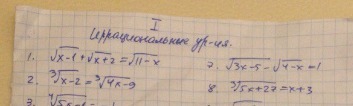 I
Иррациональные ур-ия.
1. √x-1 + √x+2 = √11-x
7. √3x-5 - √4-x = 1
2. ³√x-2 = ³√4x-9
8. ³√5x+27 = x+3
3.